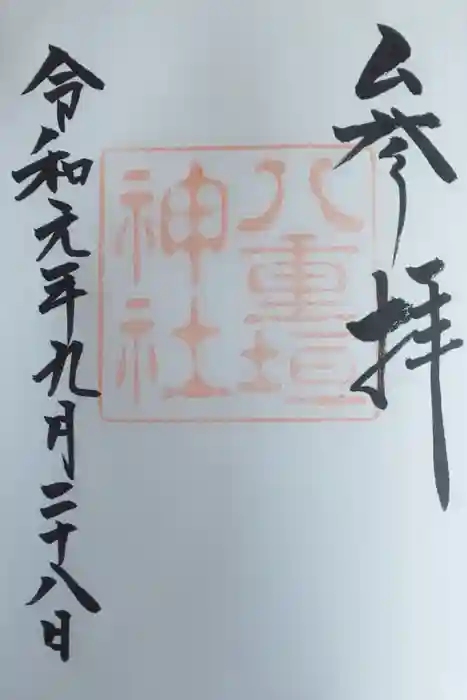 参拝
八重垣
神社
令和元年九月二十八日